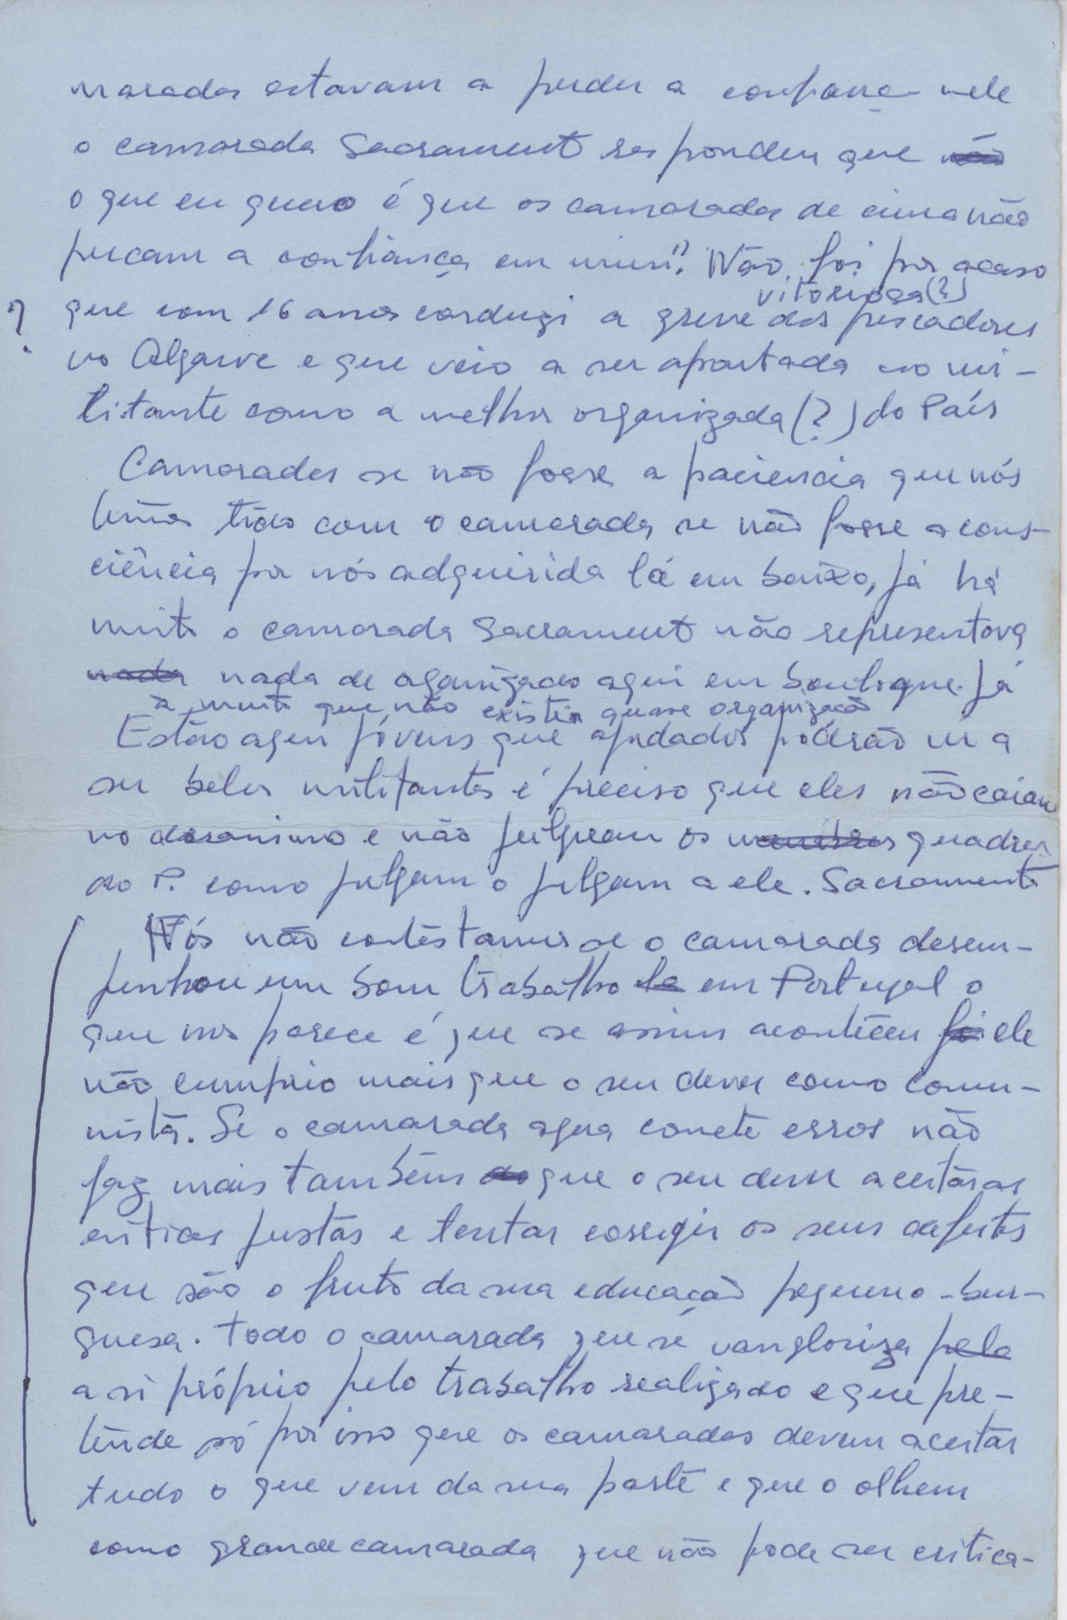 maradas estavam a perder a confiança nele
o camarada Sacrament respondeu que não
o que eu quero é que os camaradas de cima não
percam a confiança em mim". Não foi por acaso
vitoriosa(?)
? que com 16 anos conduzi a greve dos pescadores
no Algarve e que veio a ser apontada no mi-
litante como a melhor organizada (?) do País
Camaradas se não fosse a paciencia que nós
temos tido com o camarada se não fosse a cons-
ciência por nós adquirida lá em baixo, já há
muito o camarada Sacrament não representava
nada nada de organizado aqui em boulogne. Já
à muito que não existia quase organização
Estão aqui jóvens que ajudados poderão vir a
ser belos militantes é preciso que eles não caiam
no desanimo e não julguem os membros quadros
do P. como julgam o julgam a ele. Sacramento
Nós não contestamos se o camarada desem-
penhou um bom trabalho la em Portugal o
que nos parece é que se assim aconteceu foi ele
não cumprio mais que o seu dever como comu-
nista. Se o camarada agora comete erros não
faz mais também do que o seu dever aceitar as
criticas justas e tentar corregir os seus defeitos
que são o fruto da sua educação pequeno-bur-
guesa. Todo o camarada que se vangloriza pelo
a si próprio pelo trabalho realizado e que pre-
tende só por isso que os camaradas devem aceitar
tudo o que vem da sua parte e que o olhem
como grande camarada que não pode ser critica-